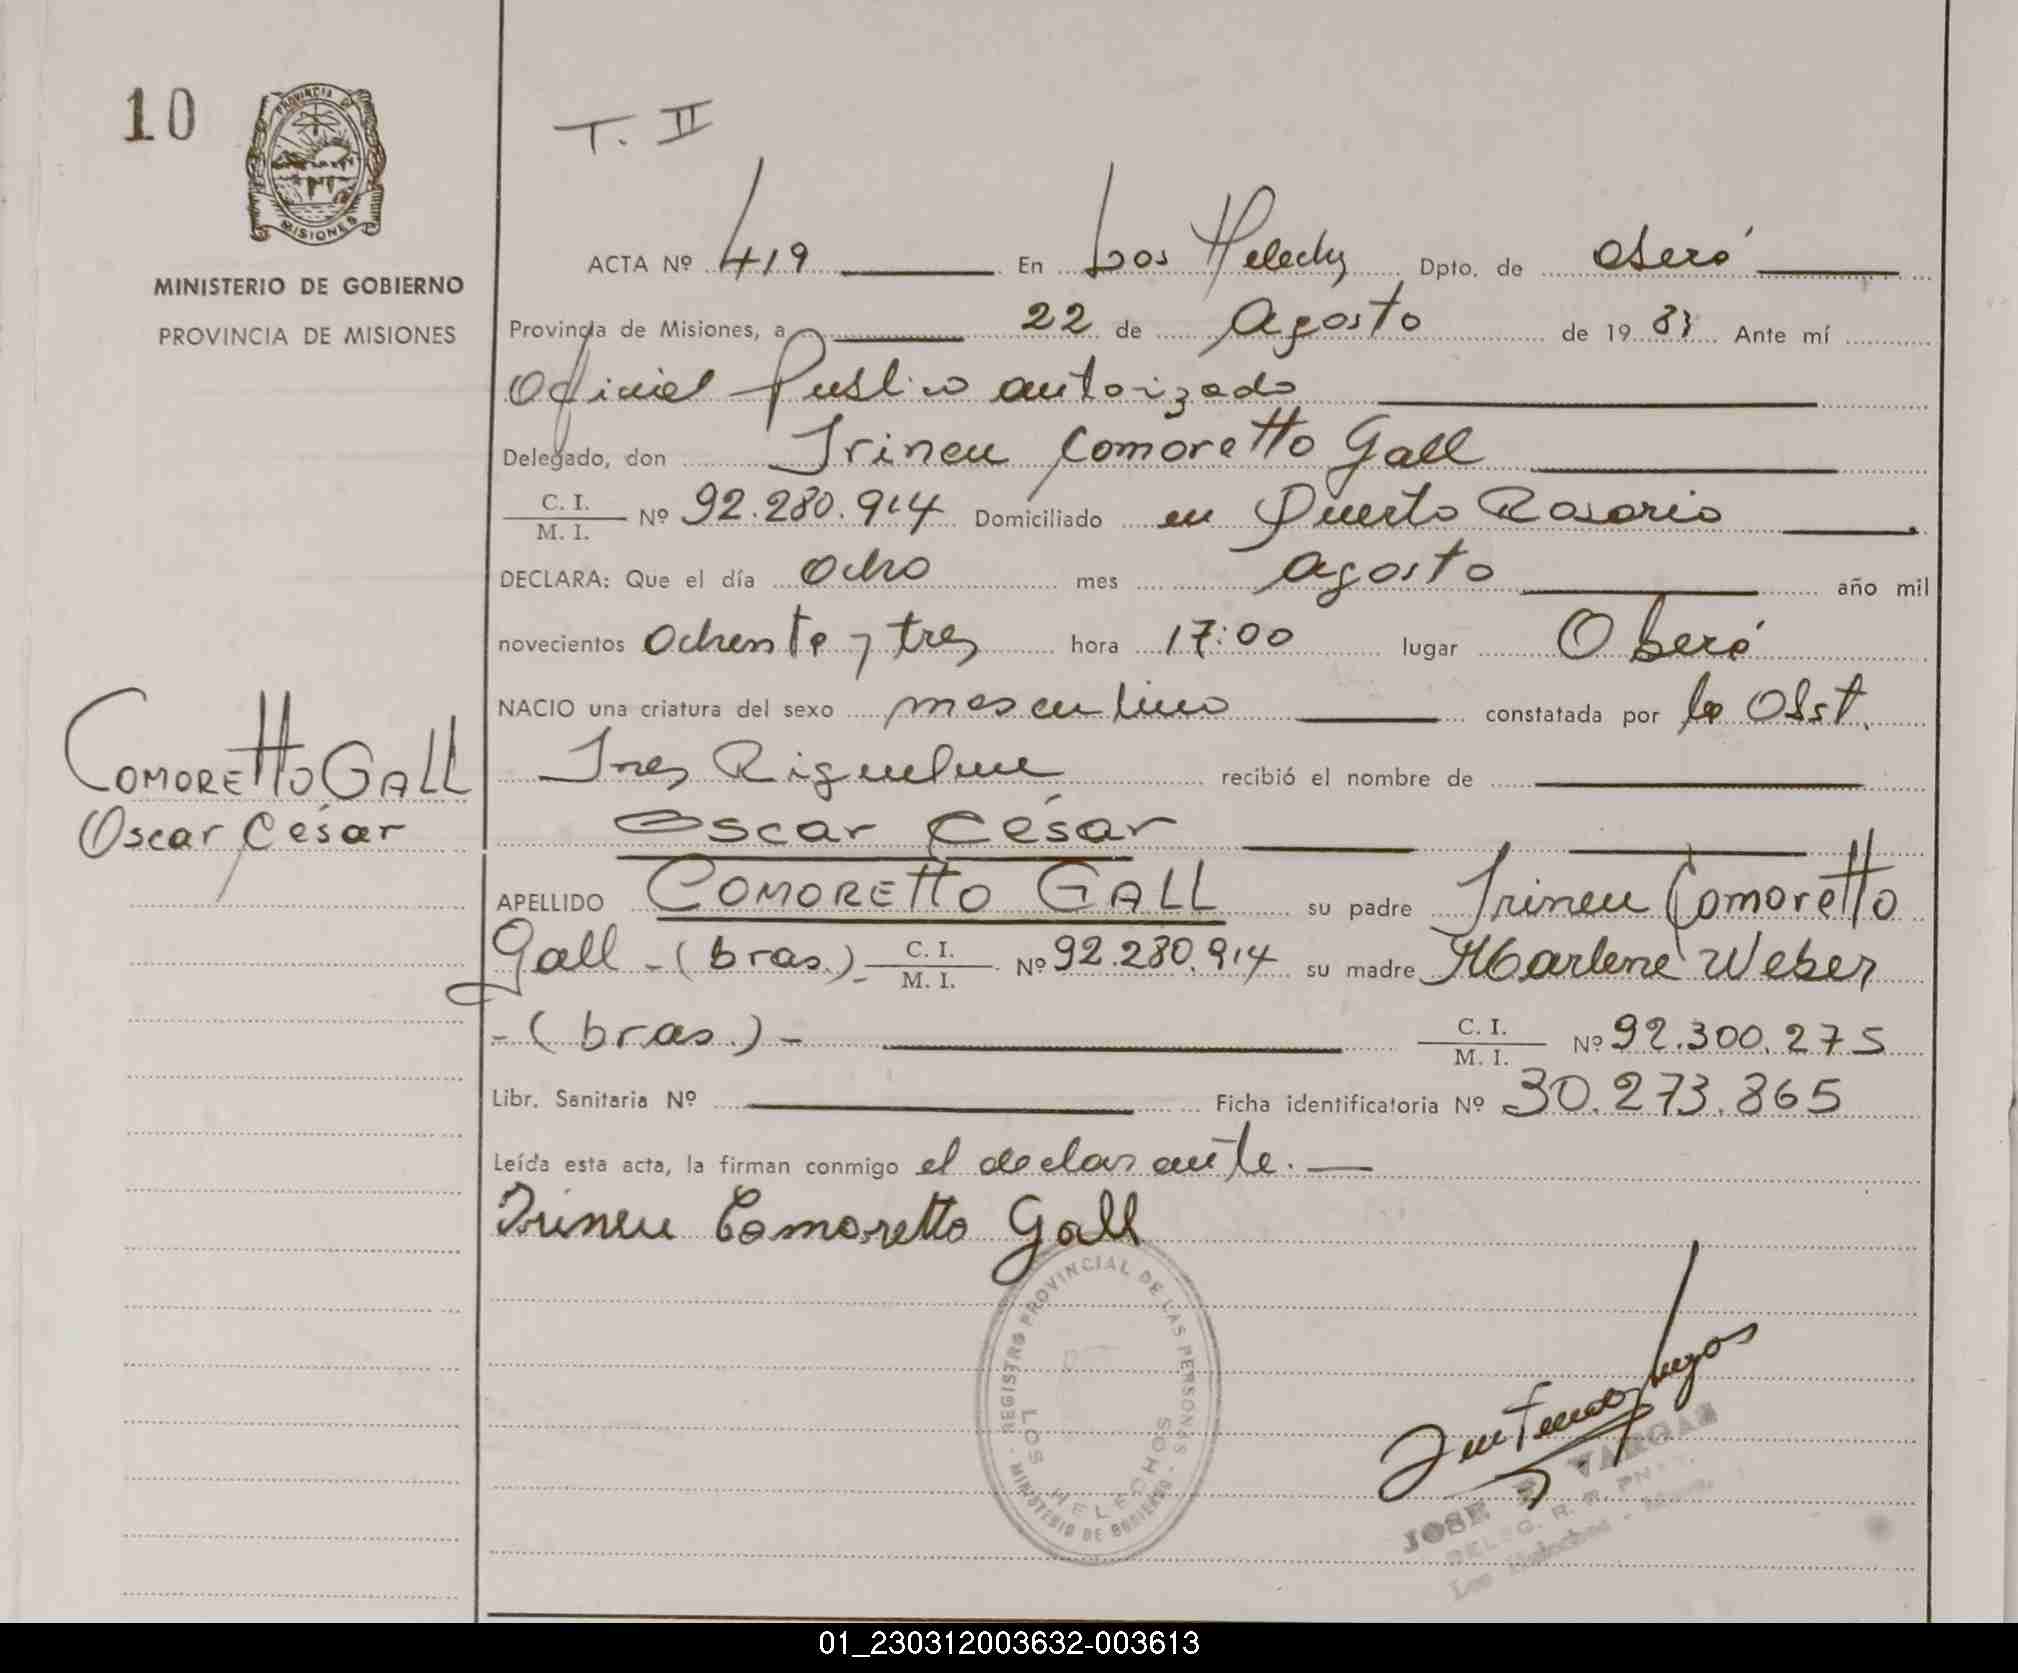 10
PROVINCIA DE
MISIONES
MINISTERIO DE GOBIERNO
PROVINCIA DE MISIONES
T. II
ACTA Nº 419 En Los Helechos Dpto. de Oberá
Provincia de Misiones, a 22 de Agosto de 1983 Ante mí
Oficial Publico autorizado
Delegado, don Irineu Comoretto Gall
C. I.
M. I. Nº 92.280.914 Domiciliado en Puerto Rosario
DECLARA: Que el día Ocho mes agosto año mil
novecientos Ochenta y tres hora 17:00 lugar Oberá
NACIO una criatura del sexo masculino constatada por la Obst.
Ines Riquelme recibió el nombre de
Oscar César
COMORETTO GALL
Oscar César
APELLIDO COMORETTO GALL su padre Irineu Comoretto
Gall - (bras.) - C. I.
M. I. Nº 92.280.914 su madre Marlene Weber
- (bras.) - C. I.
M. I. Nº 92.300.275
Libr. Sanitaria Nº Ficha identificatoria Nº 30.273.865
Leída esta acta, la firman conmigo el declarante.
Irineu Comoretto Gall
REGISTRO PROVINCIAL DE LAS PERSONAS
MINISTERIO DE GOBIERNO
LOS HELECHOS
JOSE VARGAS
DELEG. R. P.
Los Helechos
01_230312003632-003613